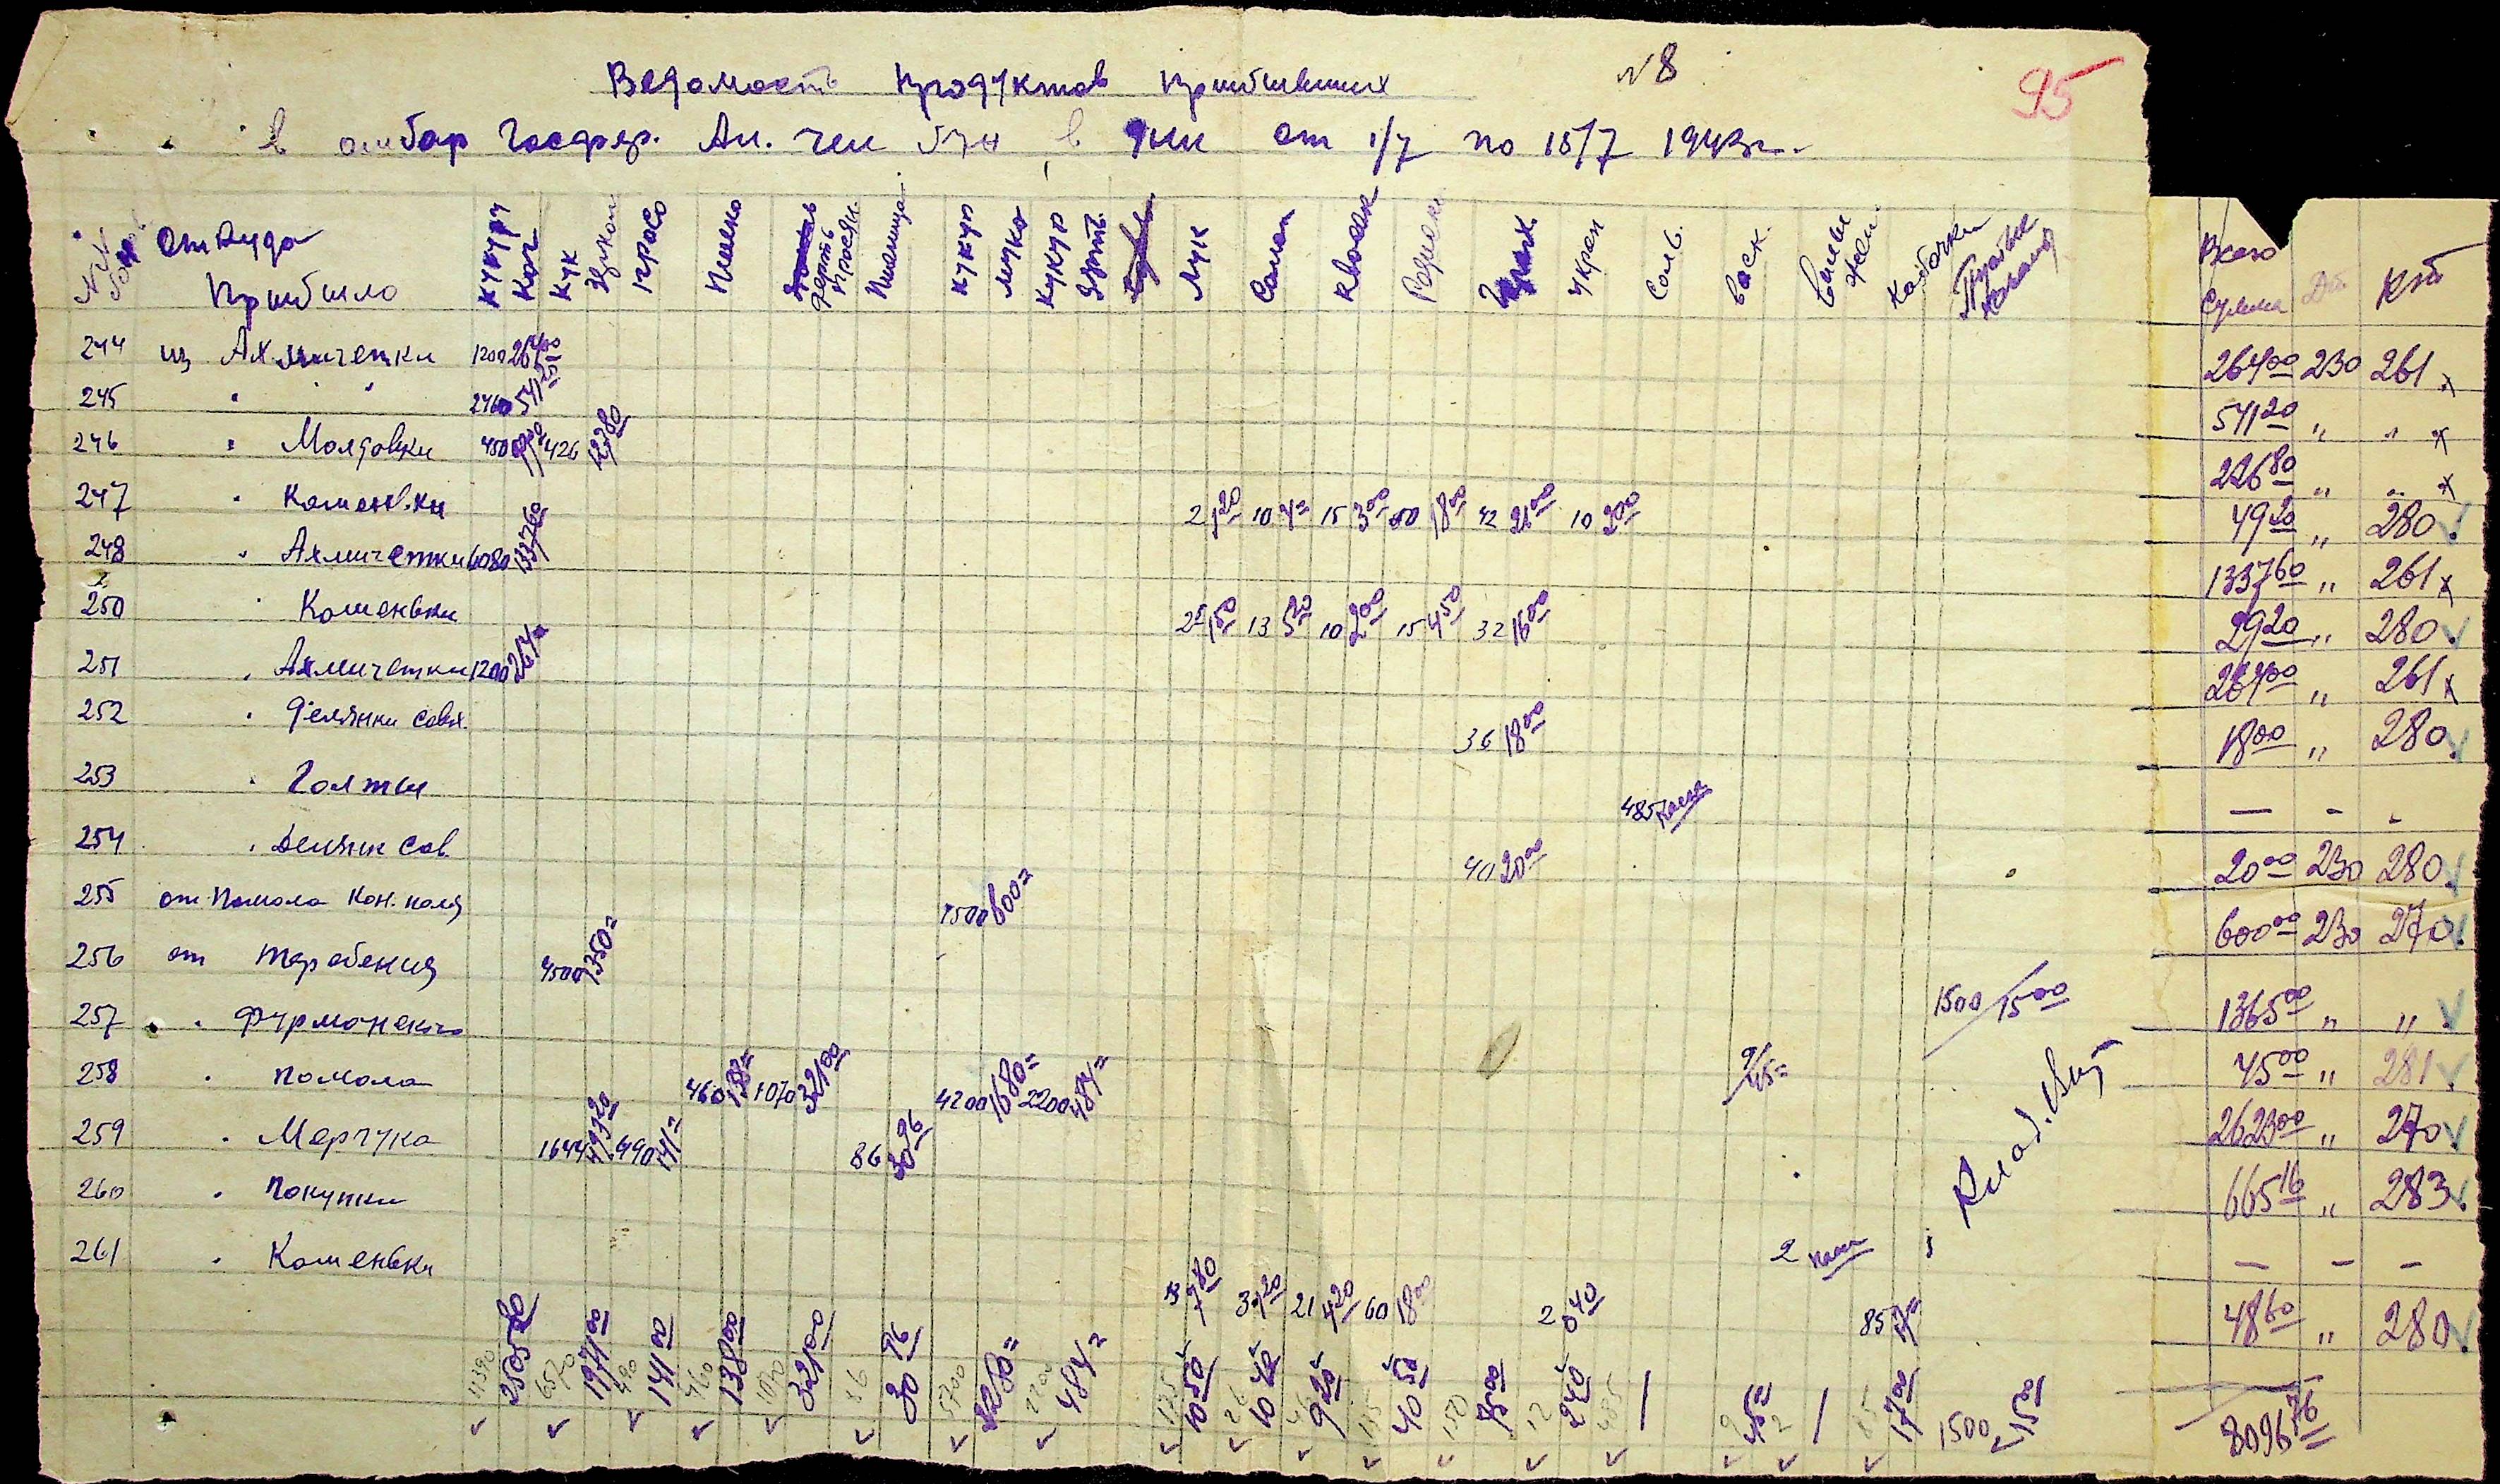 Ведомость продуктов прибывших №8
95
в амбар Госфер. Ак. чел в дни от 1/7 по 15/7 1943 г.
Откуда Прибыло Кукур Кач Кук Просо Пшено дерть просян. Пшеница Кукур мука Кукур дерть Лук Салат Квасок Редиска Горох Укроп Соль Воск Кабачки Всего сумма Дб Кт
244 из Ахмичетки 1200 264 00 264 00 230 261 x
245 " " 2460 541 20 541 20 " " x
246 " Молдовки 450 99 00 426 127 80 226 80 " " x
247 " Каменвки 2 1 20 10 4= 15 3 00 60 18 00 42 21 00 10 2 00 49 20 " 280 ✓
248 " Ахмичетки 6080 1337 60 1337 60 " 261 x
250 " Каменвки 25 1 50 13 5 20 10 2 00 15 4 50 32 16 00 29 20 " 280 ✓
251 " Ахмичетки 1200 264= 264 00 " 261 x
252 " Делянки совх. 36 18 00 18 00 " 280 ✓
253 " Голты 485 — - -
254 " Делянк Сов. 40 20 00 20 00 230 280 ✓
255 от Помола 1500 600= 600 00 230 270 ✓
256 от таробения 4500 1350= 1500/15 00 1365 00 " " ✓
257 " Фурманского 9/45= 45 00 " 281 ✓
258 " помола 460 138= 1070 321 00 4200 1680= 2200 484= 2623 00 " 270 ✓
259 " Марчука 1644 493 20 490 141= 86 30 96 665 16 " 283 ✓
260 " Покупки 2 — - -
261 " Каменвки 13 7 80 3 1 20 21 4 20 60 18 00 2 0 40 85 17= 48 60 " 280 ✓
Клад.
11390 2505 80 6570 1971 00 490 141 00 460 138 00 1070 321 00 86 30 96 5700 2280= 2200 484= 10 50 26 10 40 46 9 20 135 40 50 150 75 00 12 2 40 485 9 45 00 2 85 17 00 1500 15 00 8096 76